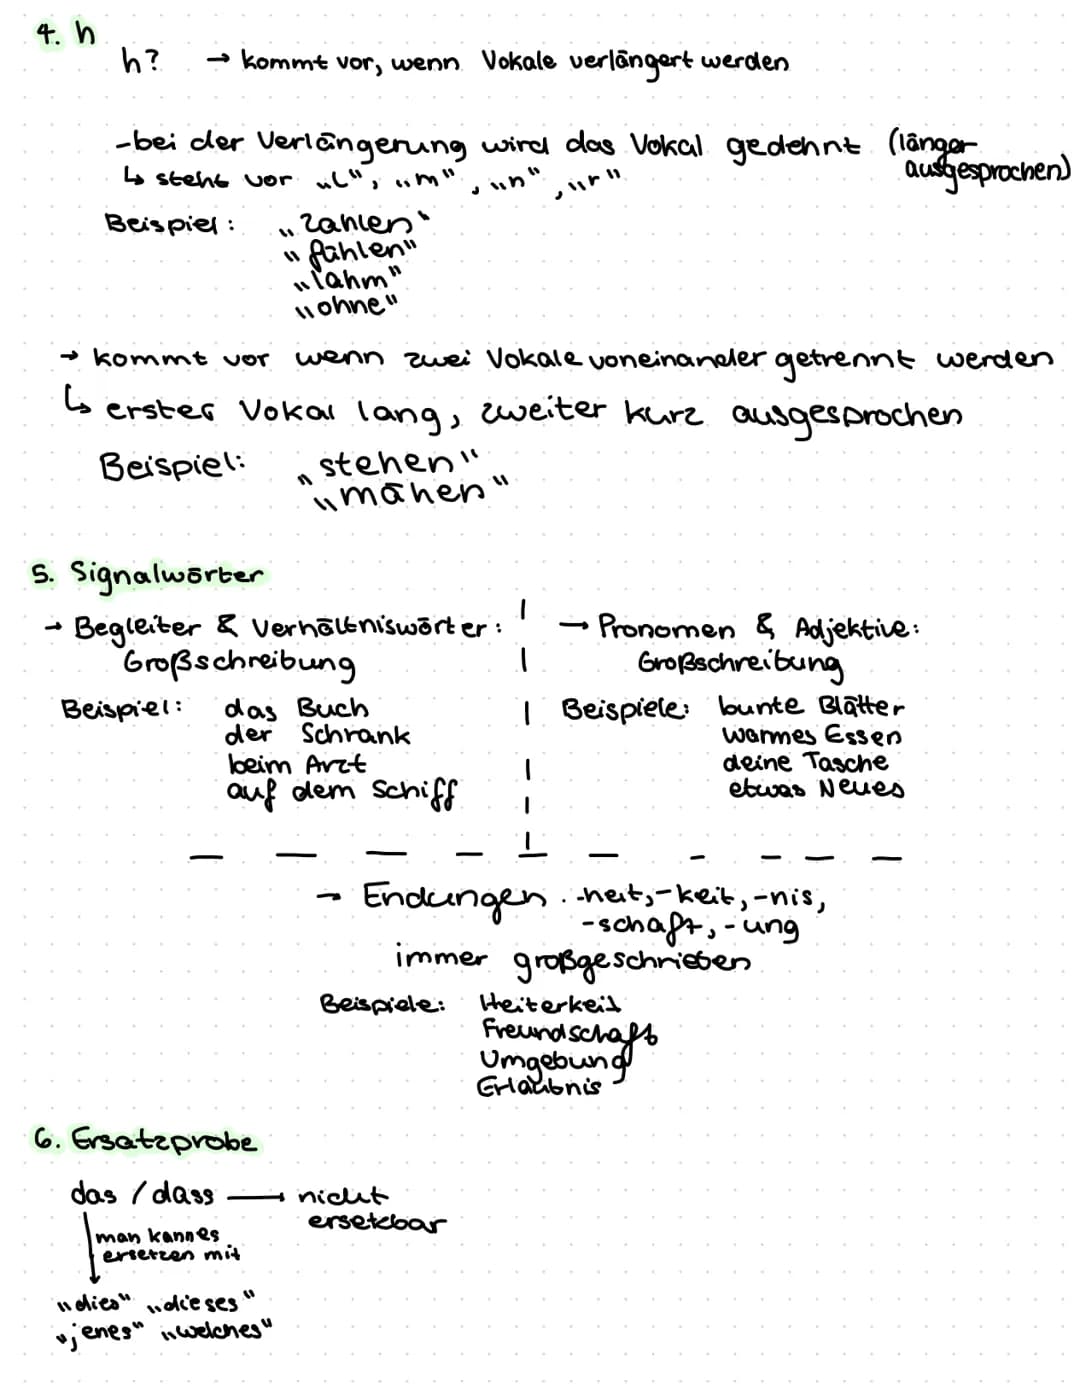 4. h
h? → kommt vor, wenn Vokale verlängert werden
-bei der Verlängerung wird das Vokal gedehnt (länger
ausgesprochen)
↳ steht vor "l", "m", "n", "r"
Beispiel: "zahlen"
"fühlen"
"lahm"
"ohne"
→ kommt vor wenn zwei Vokale voneinander getrennt werden
↳ erster Vokal lang, zweiter kurz ausgesprochen
Beispiel: "stehen"
"mähen"
5. Signalwörter
→ Begleiter & Verhältniswörter:
Großschreibung
Beispiel: das Buch
der Schrank
beim Arzt
auf dem Schiff
→ Pronomen & Adjektive:
Großschreibung
Beispiele: bunte Blätter
warmes Essen
deine Tasche
etwas Neues
→ Endungen: -heit, -keit, -nis,
-schaft, -ung
immer großgeschrieben
Beispiele: Heiterkeit
Freundschaft
Umgebung
Erlaubnis
6. Ersatzprobe
das / dass → nicht
ersetzbar
man kann es
ersetzen mit
"dies" "dieses"
"jenes" "welches"